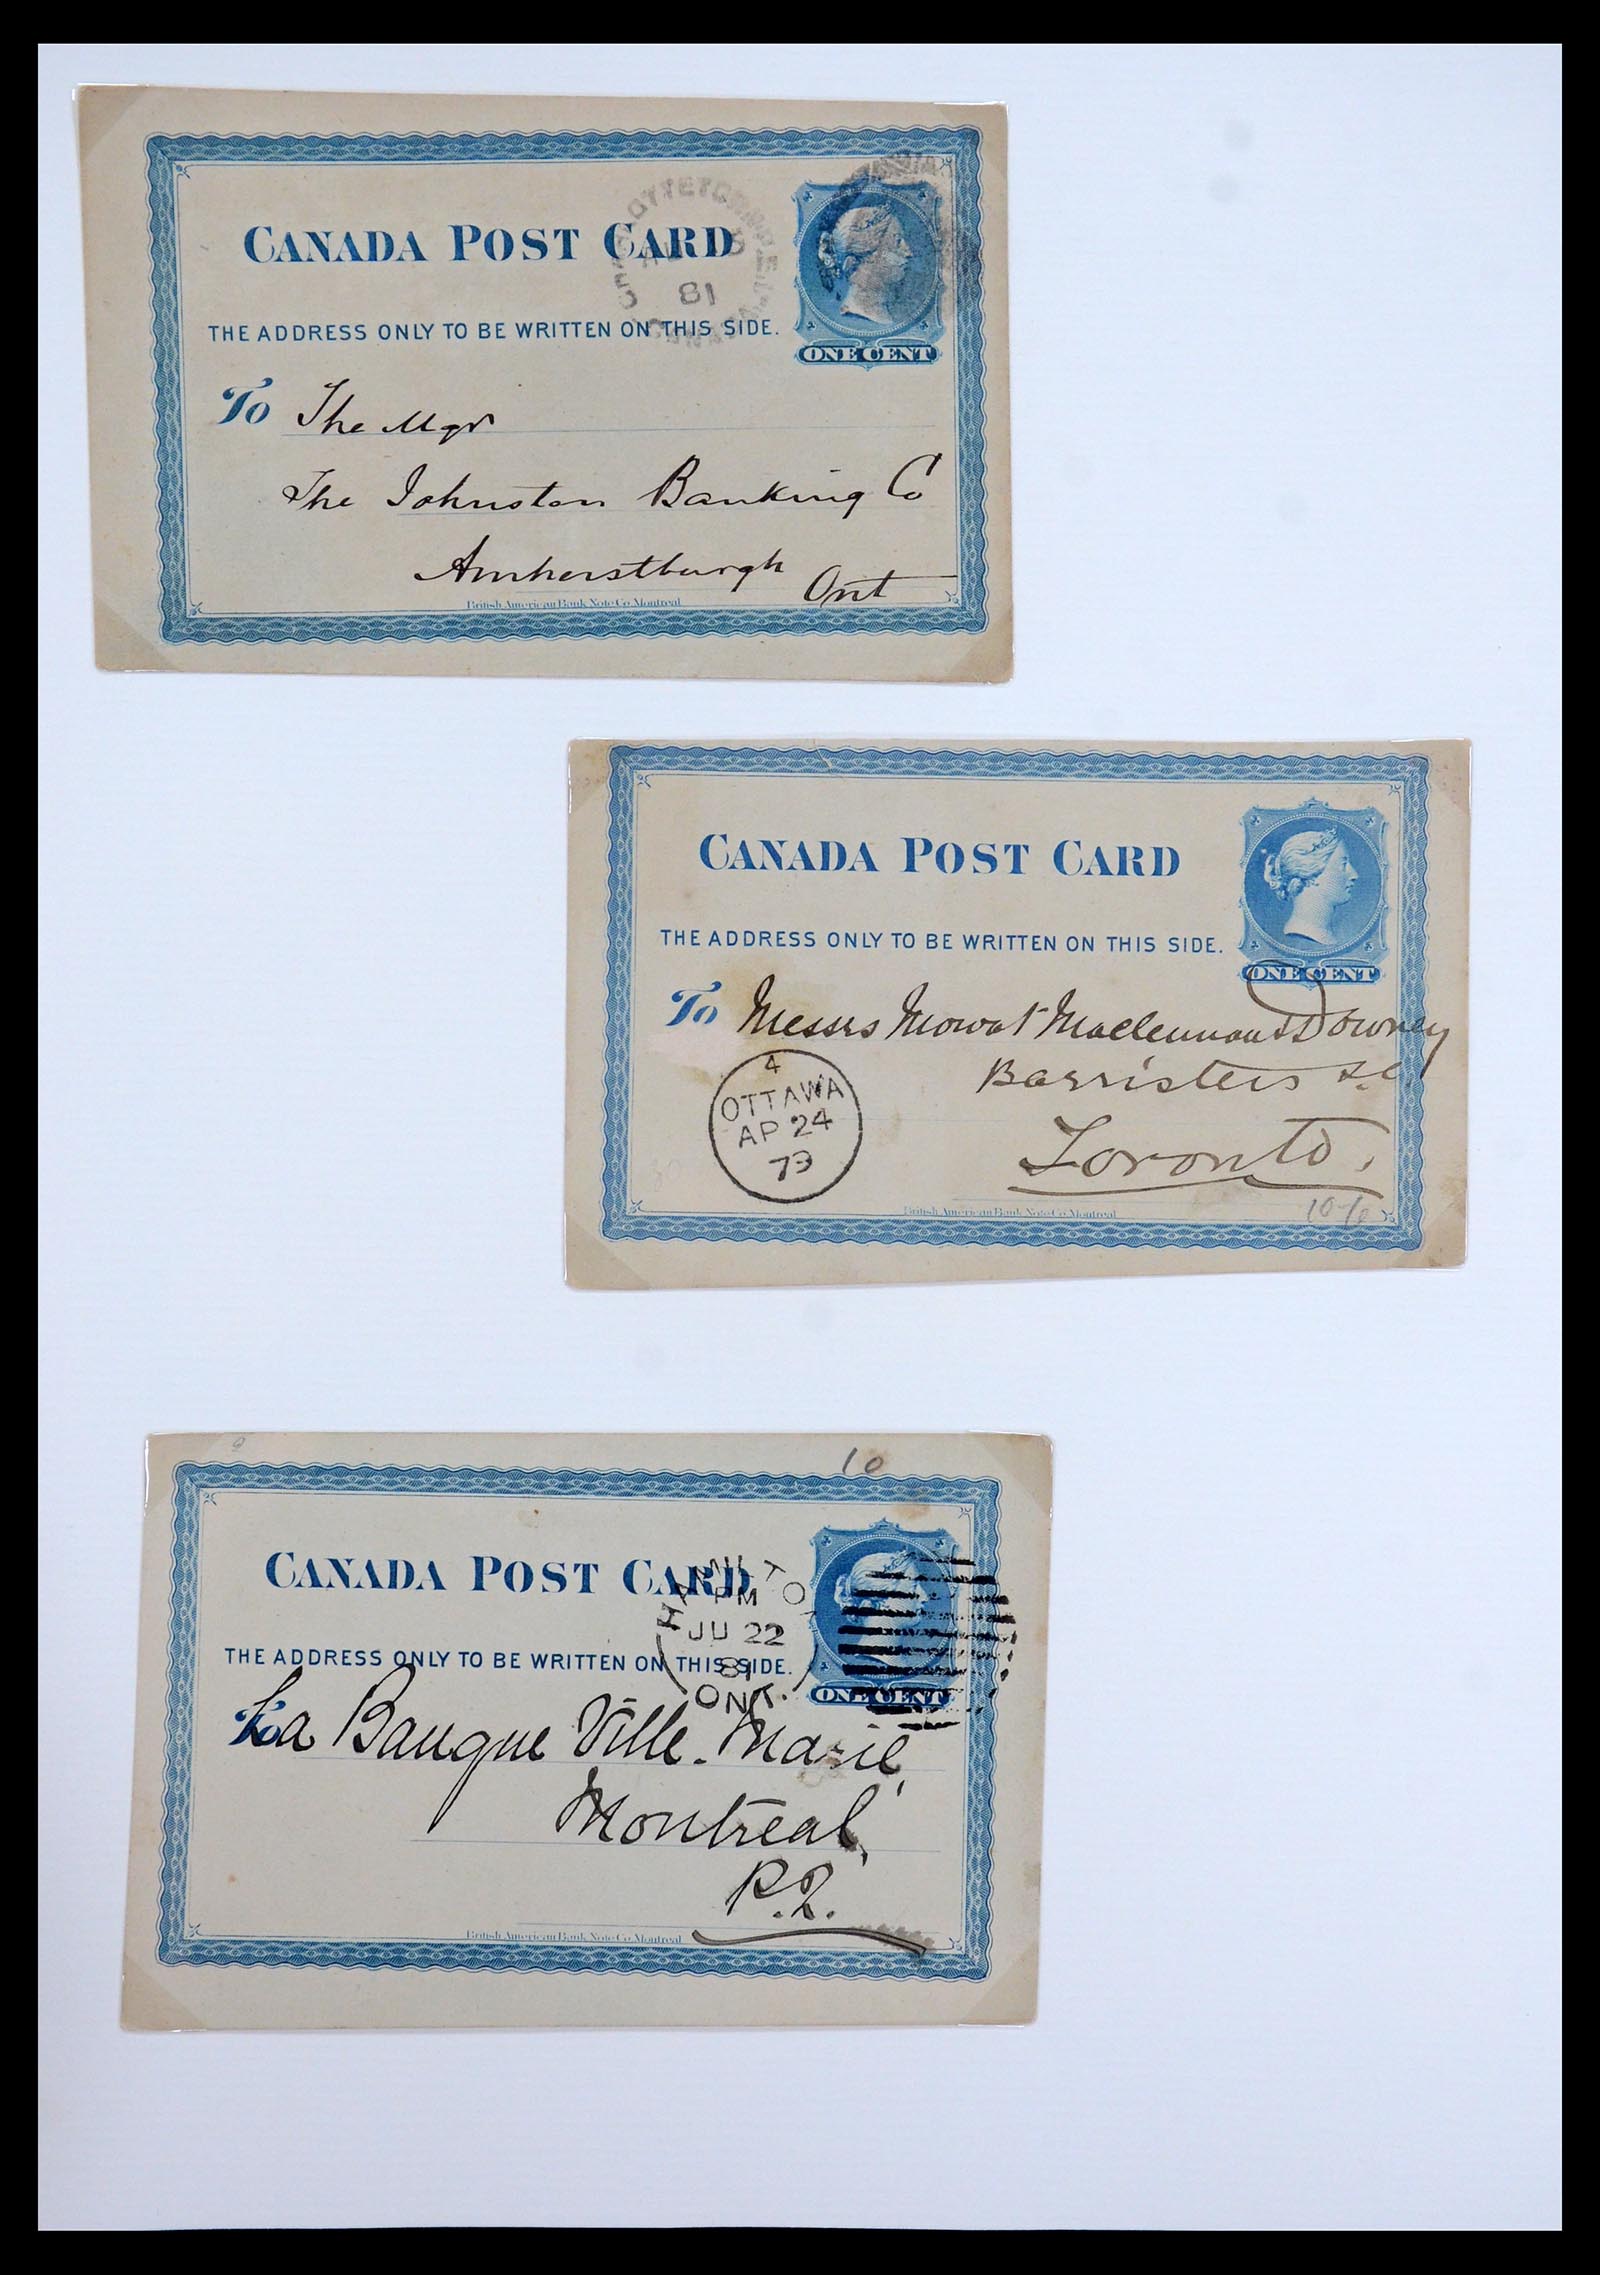 CANADA POST CARD
THE ADDRESS ONLY TO BE WRITTEN ON THIS SIDE.
81
ONE CENT
To The Mgr
The Johnston Banking Co
Amherstburgh
Ont
British American Bank Note Co. Montreal
CANADA POST CARD
THE ADDRESS ONLY TO BE WRITTEN ON THIS SIDE.
ONE CENT
To Messrs Mowat Maclennan & Downey
Barristers &c
Toronto.
4
OTTAWA
AP 24
79
British American Bank Note Co. Montreal
10
CANADA POST CARD
THE ADDRESS ONLY TO BE WRITTEN ON THIS SIDE.
HAMILTON
PM
JU 22
81
ONT.
ONE CENT
To
La Banque Ville-Marie,
Montreal,
P.Q.
British American Bank Note Co. Montreal